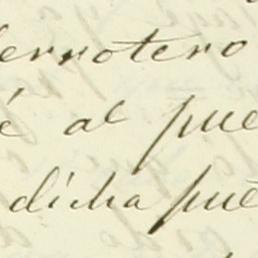 errotero
é al pue
dicha pue